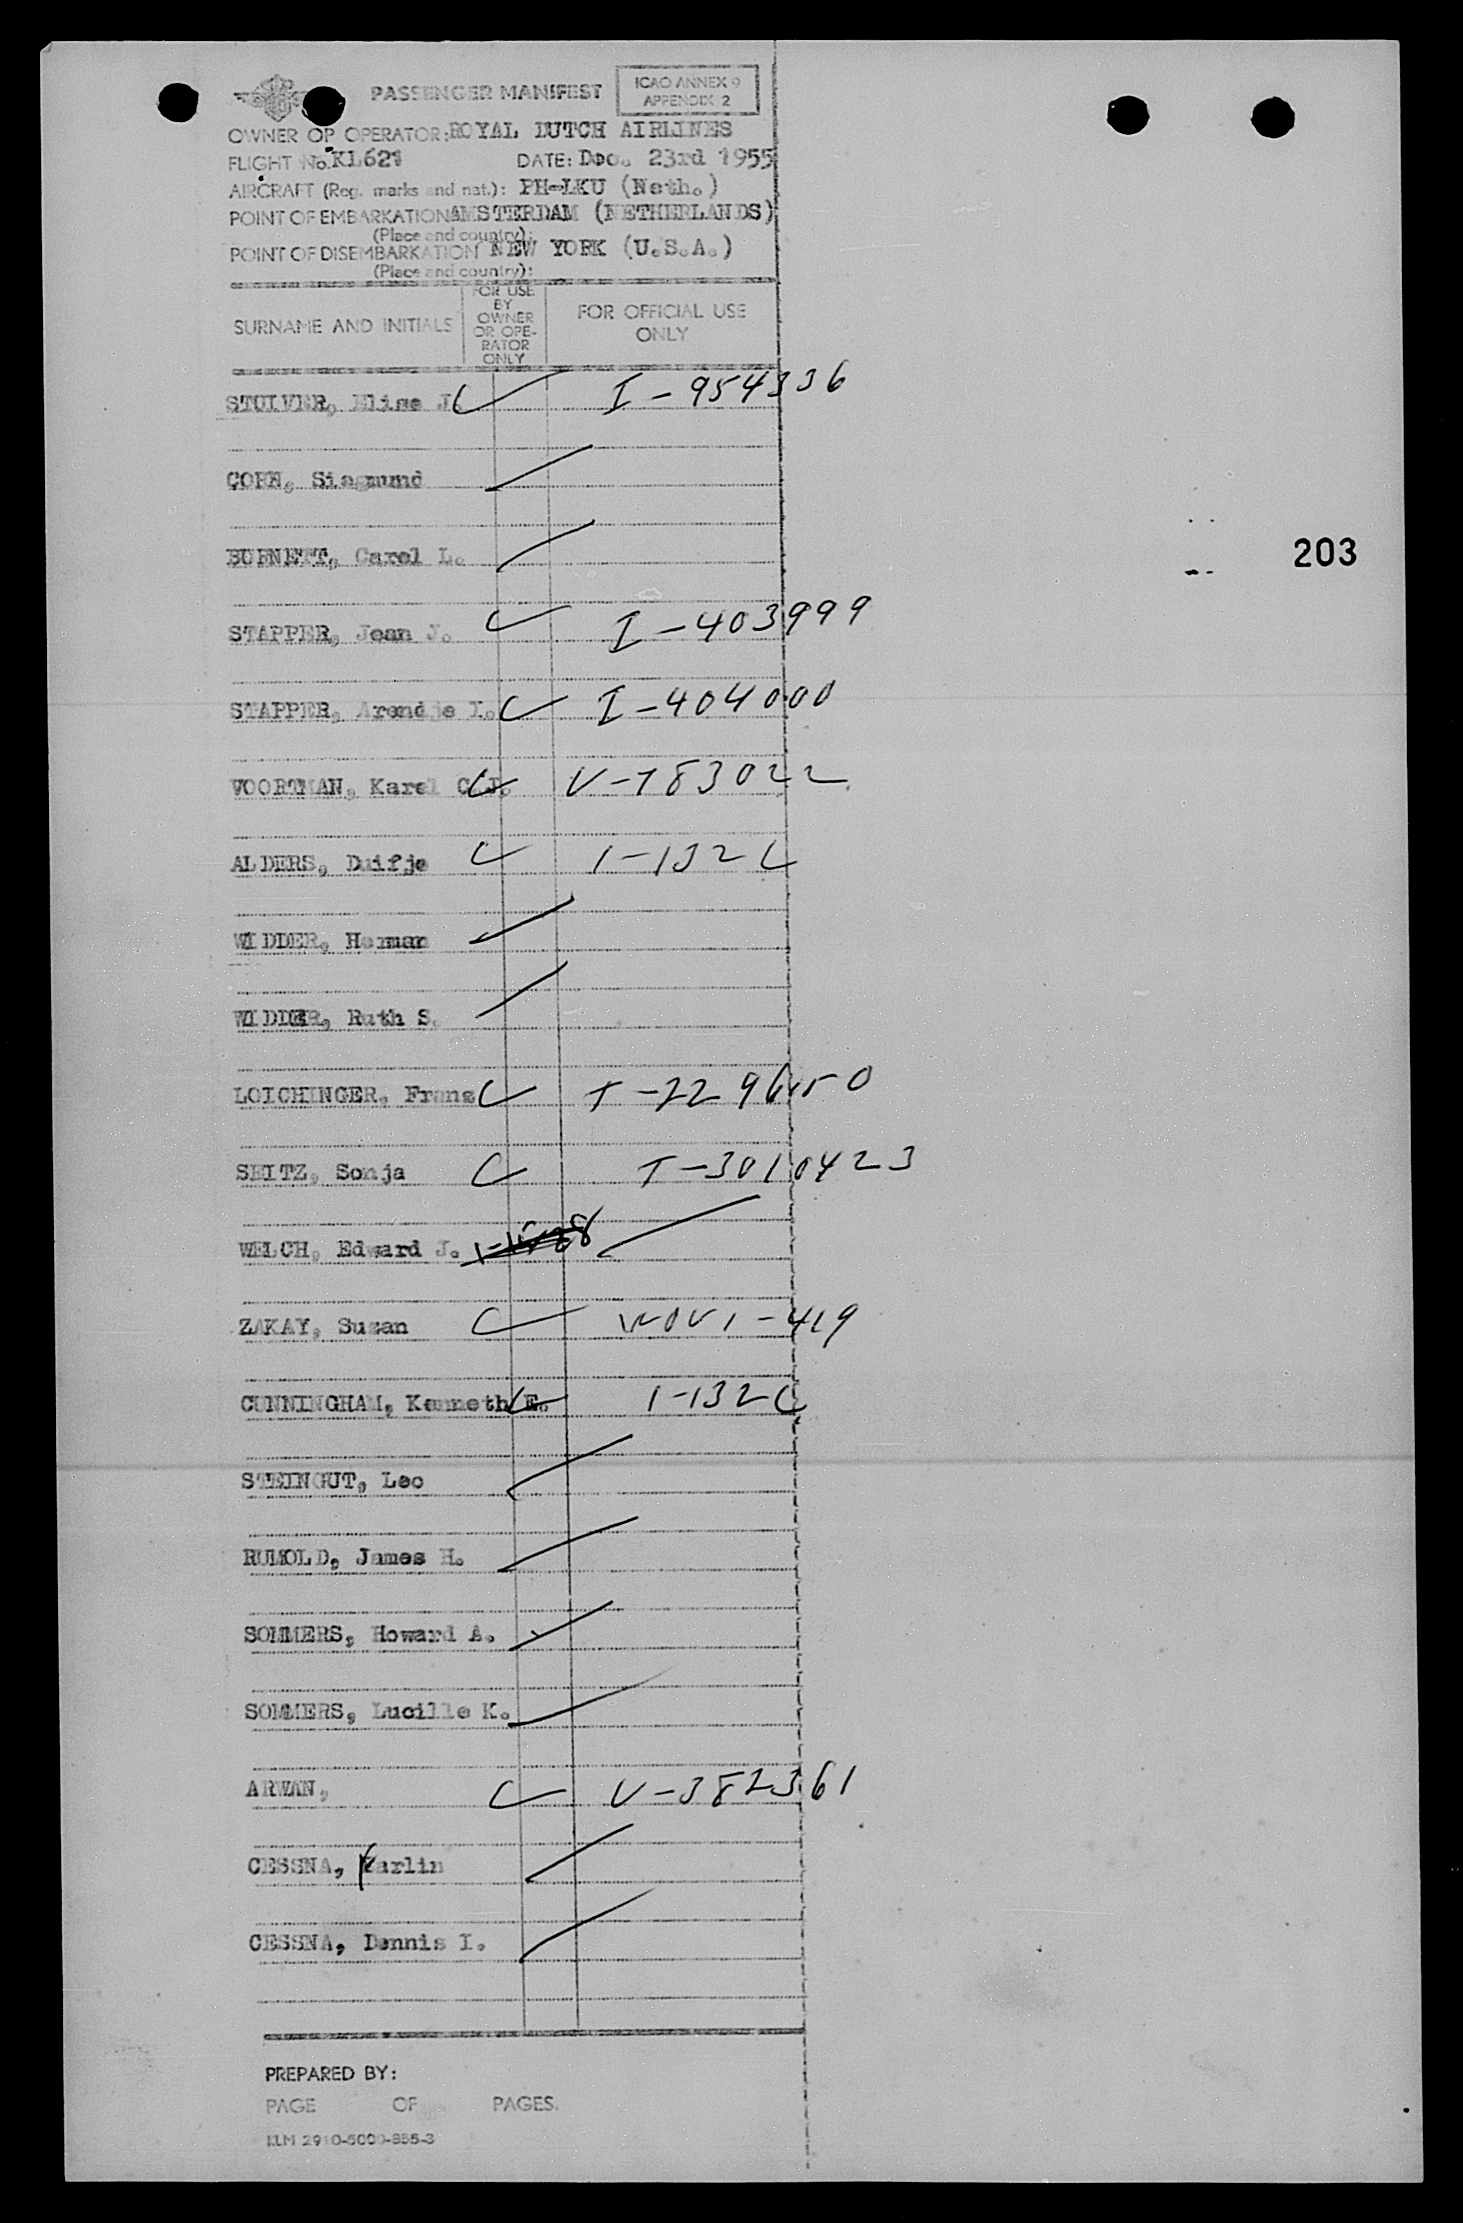 PASSENGER MANIFEST
ICAO ANNEX 9
APPENDIX 2
OWNER OR OPERATOR: ROYAL DUTCH AIRLINES
FLIGHT No. KL621 DATE: Dec. 23rd 1955
AIRCRAFT (Reg. marks and nat.): PH-LKU (Neth.)
POINT OF EMBARKATION AMSTERDAM (NETHERLANDS)
(Place and country):
POINT OF DISEMBARKATION NEW YORK (U.S.A.)
(Place and country):
SURNAME AND INITIALS
FOR USE
BY
OWNER
OR OPE-
RATOR
ONLY
FOR OFFICIAL USE
ONLY
STUIVER, Elise J. I-954336
COHN, Siegmund
BURNETT, Carol L.
203
STAPPER, Jean J. I-403999
STAPPER, Arendje I. I-404000
VOORTMAN, Karel C.J. V-783022
ALDERS, Duifje 1-132 C
WIDDER, Herman
WIDDER, Ruth S.
LOICHINGER, Franz
SEITZ, Sonja T-3010423
WELCH, Edward J.
ZAKAY, Suzan
CUNNINGHAM, Kenneth E. 1-132 C
STEINGUT, Leo
RUMOLD, James H.
SOMMERS, Howard A.
SOMMERS, Lucille K.
ARWAN, V-382361
CESSNA, Karlin
CESSNA, Dennis I.
PREPARED BY:
PAGE OF PAGES.
KLM 2910-5000-855-3